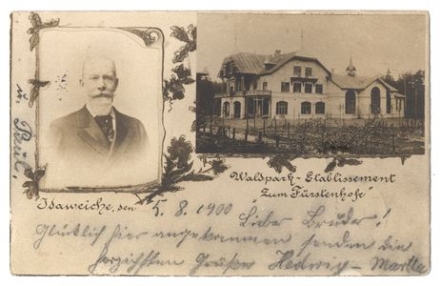 Waldpark-Etablissement
"Zum Fürstenhofe"
Idaweiche, den 5. 8. 1900
Lieber Bruder!
Glücklich hier angekommen senden die
herzlichsten Grüße Hedwig-Martha
Paul